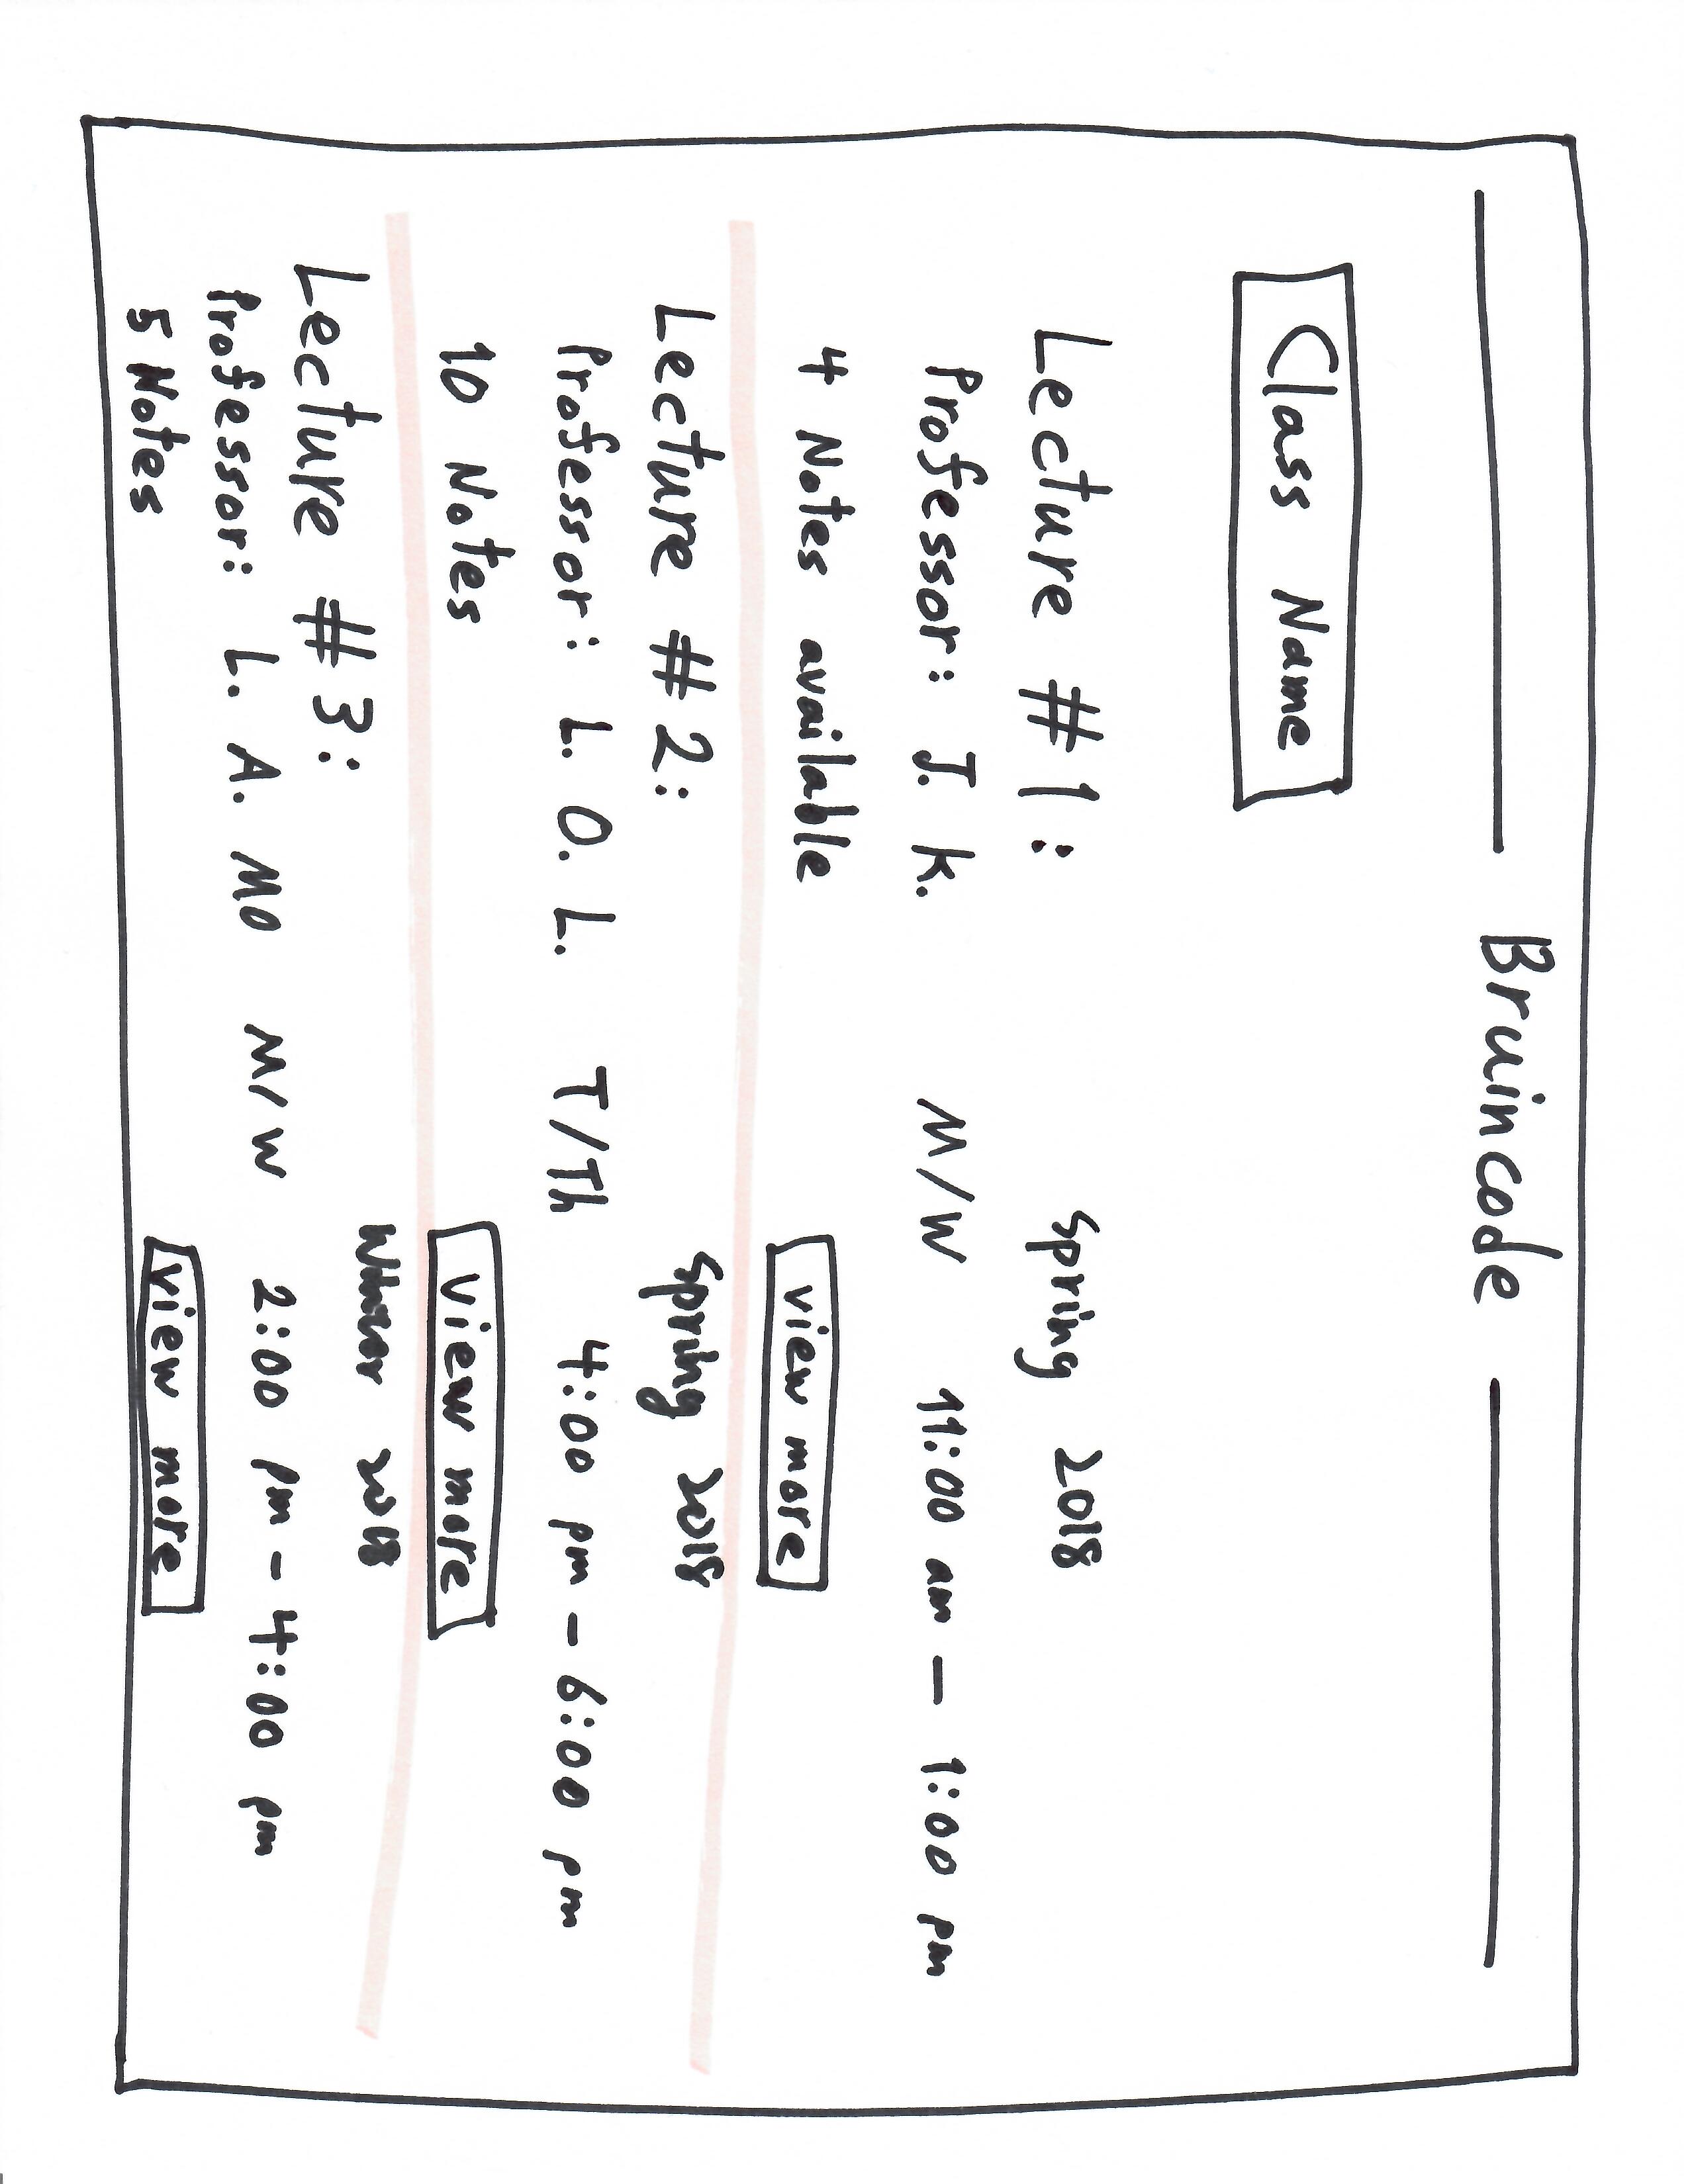 Bruincode
Class Name
Lecture #1: Spring 2018
Professor: J. K. M/W 11:00 am - 1:00 pm
4 Notes available view more
Lecture #2: Spring 2018
Professor: L. O. L. T/Th 4:00 pm - 6:00 pm
10 Notes view more
Lecture #3: Winter 2018
Professor: L. A. MO M/W 2:00 pm - 4:00 pm
5 Notes view more